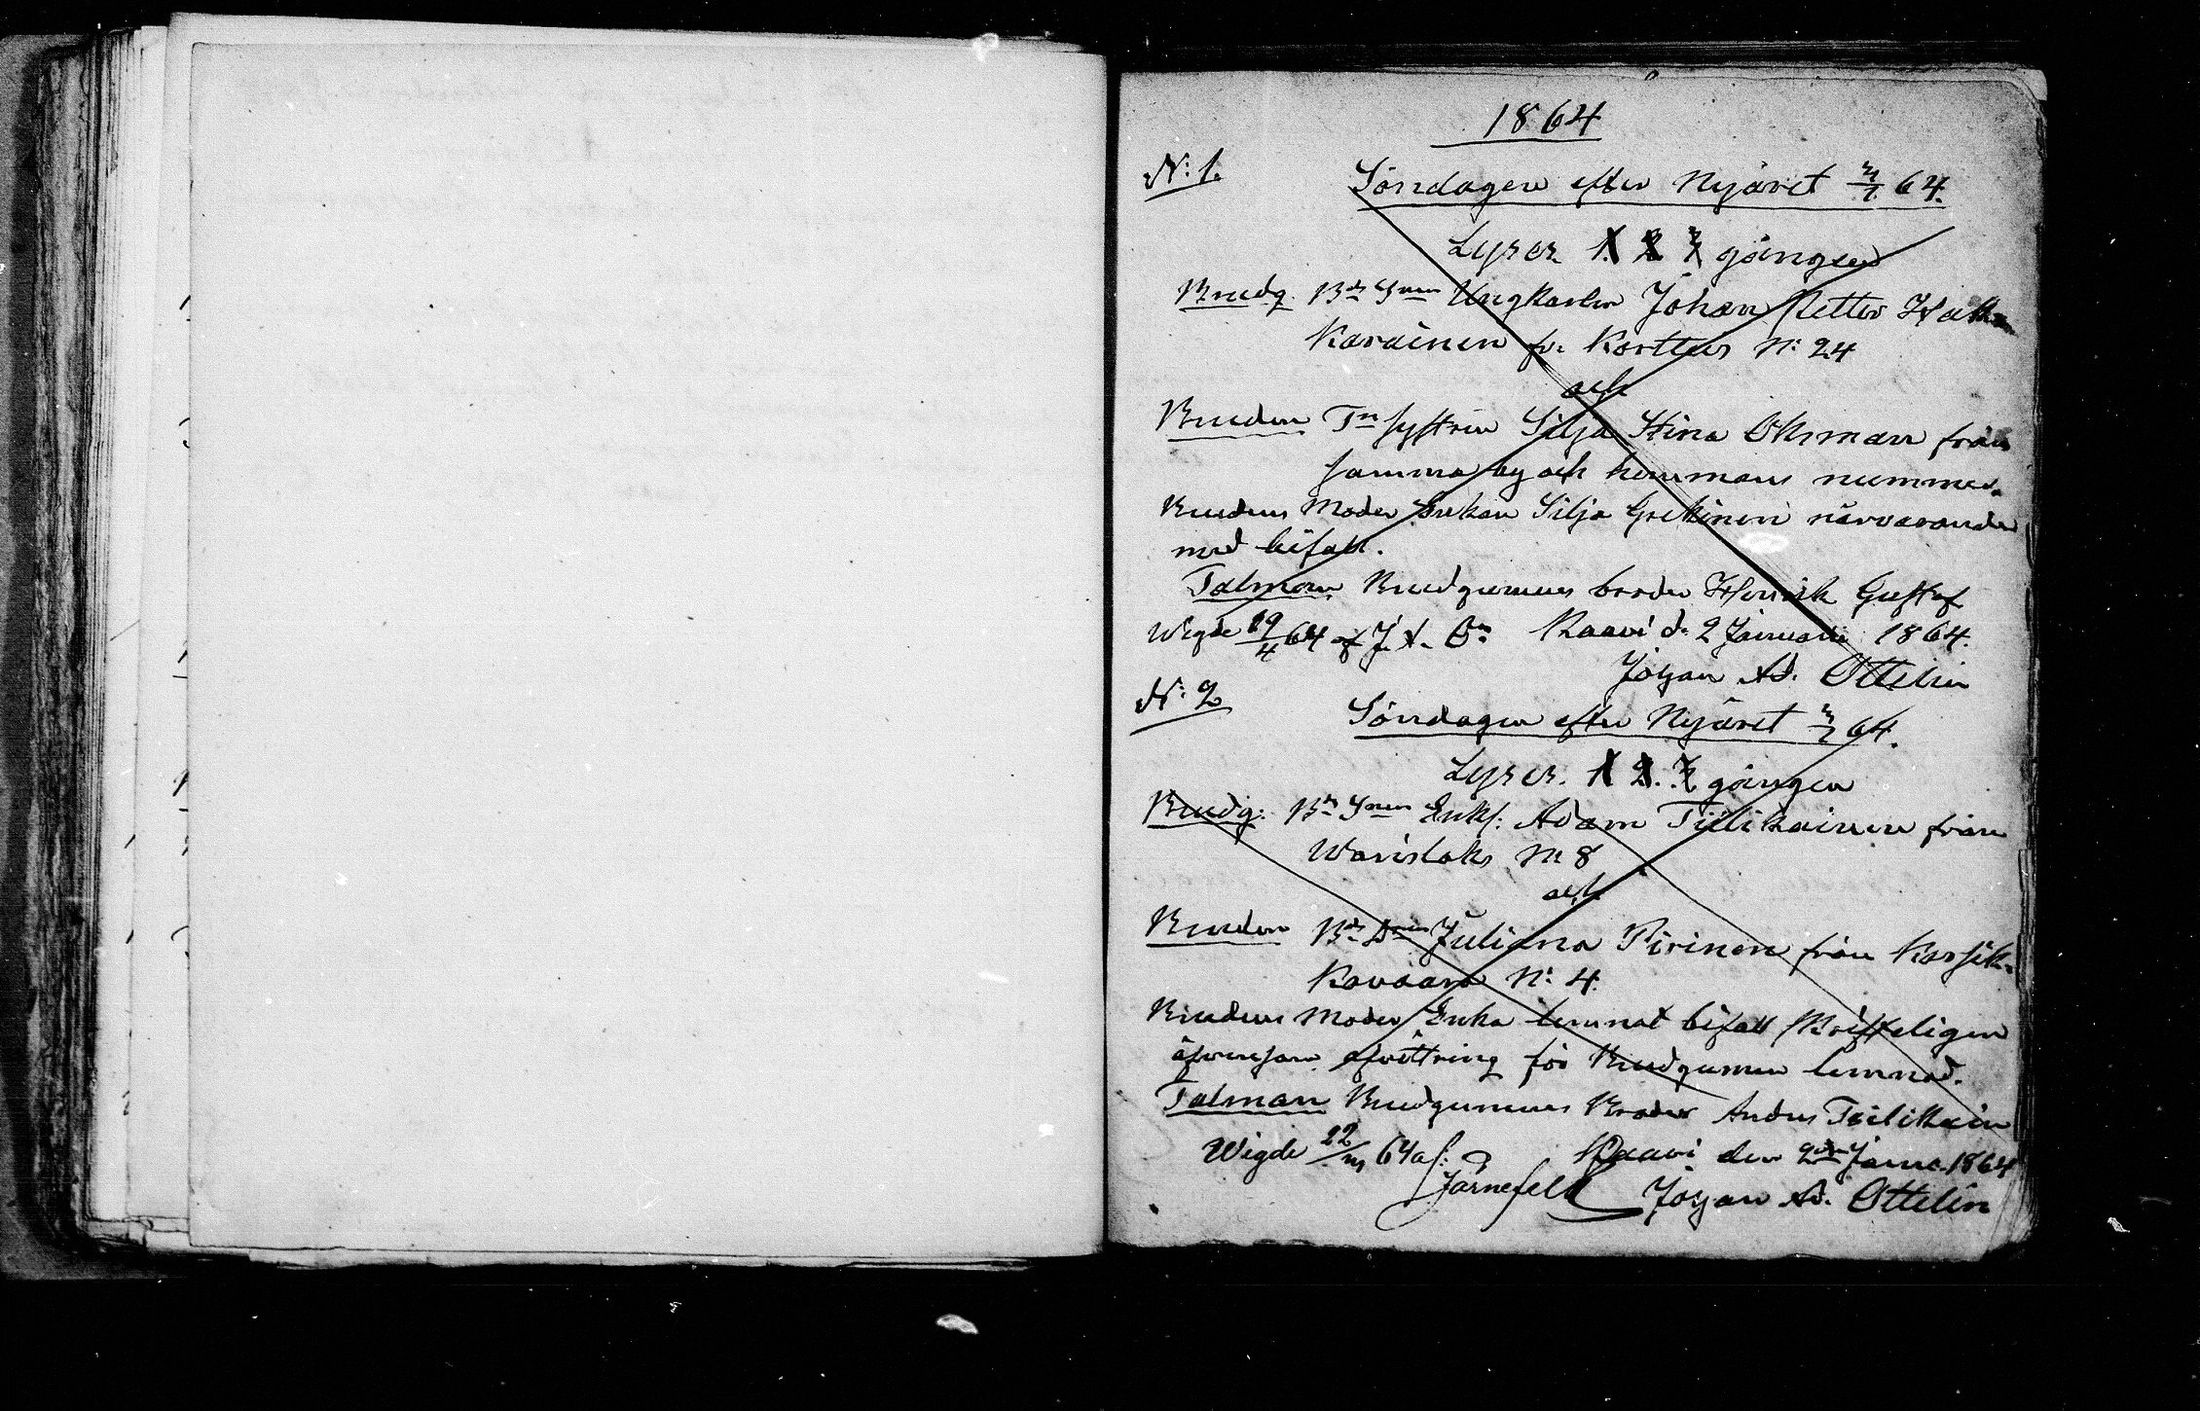 1864
N: 1.
Söndagen efter Nyåret 3/1 64.
Lyses 1 2 3 gången
Brudg. Bd Sonen Ungkarlen Johan Petter
Karainen fr. Korttus N: 24
och
Bruden Tn systren Silja Stina Öhman från
samma by och hemmans nummer.
Brudens Moder Enkan Silja närvarande
med bifall.
Talman Brudgumens broder Henrik Gustaf
Wigde 19/4 64 af J. A. On Kaavi d. 2 Januari 1864.
Johan Ad. Ottelin
N: 2
Söndagen efter Nyåret 3/1 64.
Lyses. 1 2. 3 gången
Brudg: Bd Sonen Enkl. Adam Tiilikainen från
Warislaks N: 8
och
Bruden Bd Dren Juliana Pirinen från Karsik-
kavaara N: 4.
Brudens Moder Enka lemnat bifall skrifteligen
äfvensom afvittring för Brudgumen lemnad.
Talman Brudgumens Broder Anders Tiilikain
Wigde 22/ 64 af: Kaavi den 2dra Janu. 1864
Järnefelt Johan Ad. Ottelin